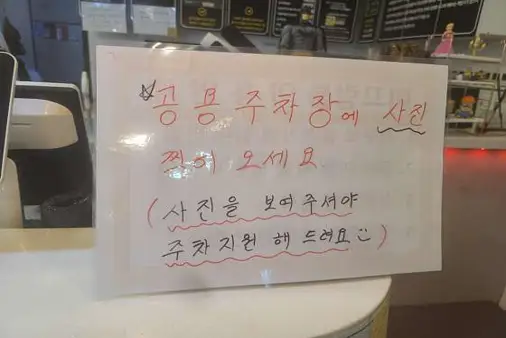 ☆공용주차장에 사진
찍어 오세요
(사진을 보여주셔야
주차지원 해 드려요 :))